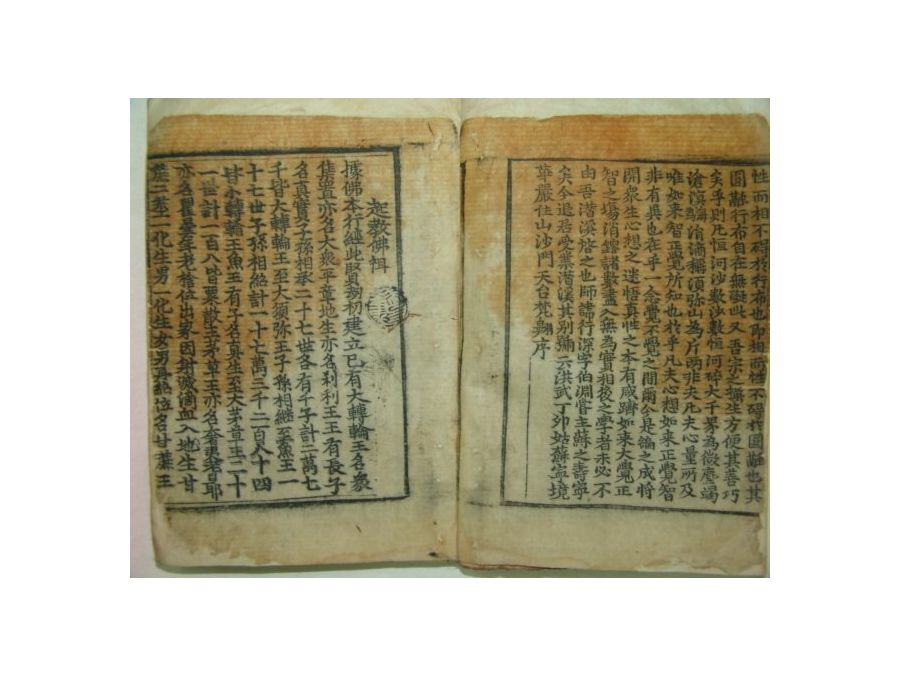 性而相不碍於行布也即相而性不碍於圓融也其
圓融行布自在無礙此又吾宗之攝生方便其善巧
矣乎則凡恒河沙數沙數恒河碎大千界為微塵竭
滄溟為滴彌須弥山為斤兩非夫凡夫心量所及
唯如来智正覺所知也於乎凡夫心想如来正覺智
非有異也在乎一念覺不覺之間爾今是編之成將
開衆生心想之迷悟真性之本有咸躋如来大覺正
智之場消鎔諸數盡入無為實相後之學者未必不
由吾潛溪啓之也師諱行深字伯淵嘗主蘇之壽寧
矣今退居受業潛溪其別號云洪武丁夘姑蘇寧境
華嚴住山沙門天台梵翺序
起教佛緝
據佛本行經此賢劫初建立已有大轉輪王名衆
集置亦名大衆平章地主亦名刹利王王有長子
名真實子孫相承二十七世各有千子計二萬七
千皆大轉輪王至大湏弥王子孫相継至魚王一
十七世子孫相継計一十七萬三千二百八十四
世小轉輪王魚王有子名真生至大茅草王二十
一世計一百八皆粟散王茅草王亦名瞿曇昔耶
亦名瞿曇年老捨位出家因射滅滴血入地生甘
蔗二莖一化生男一化生女男再紹位名甘蔗王